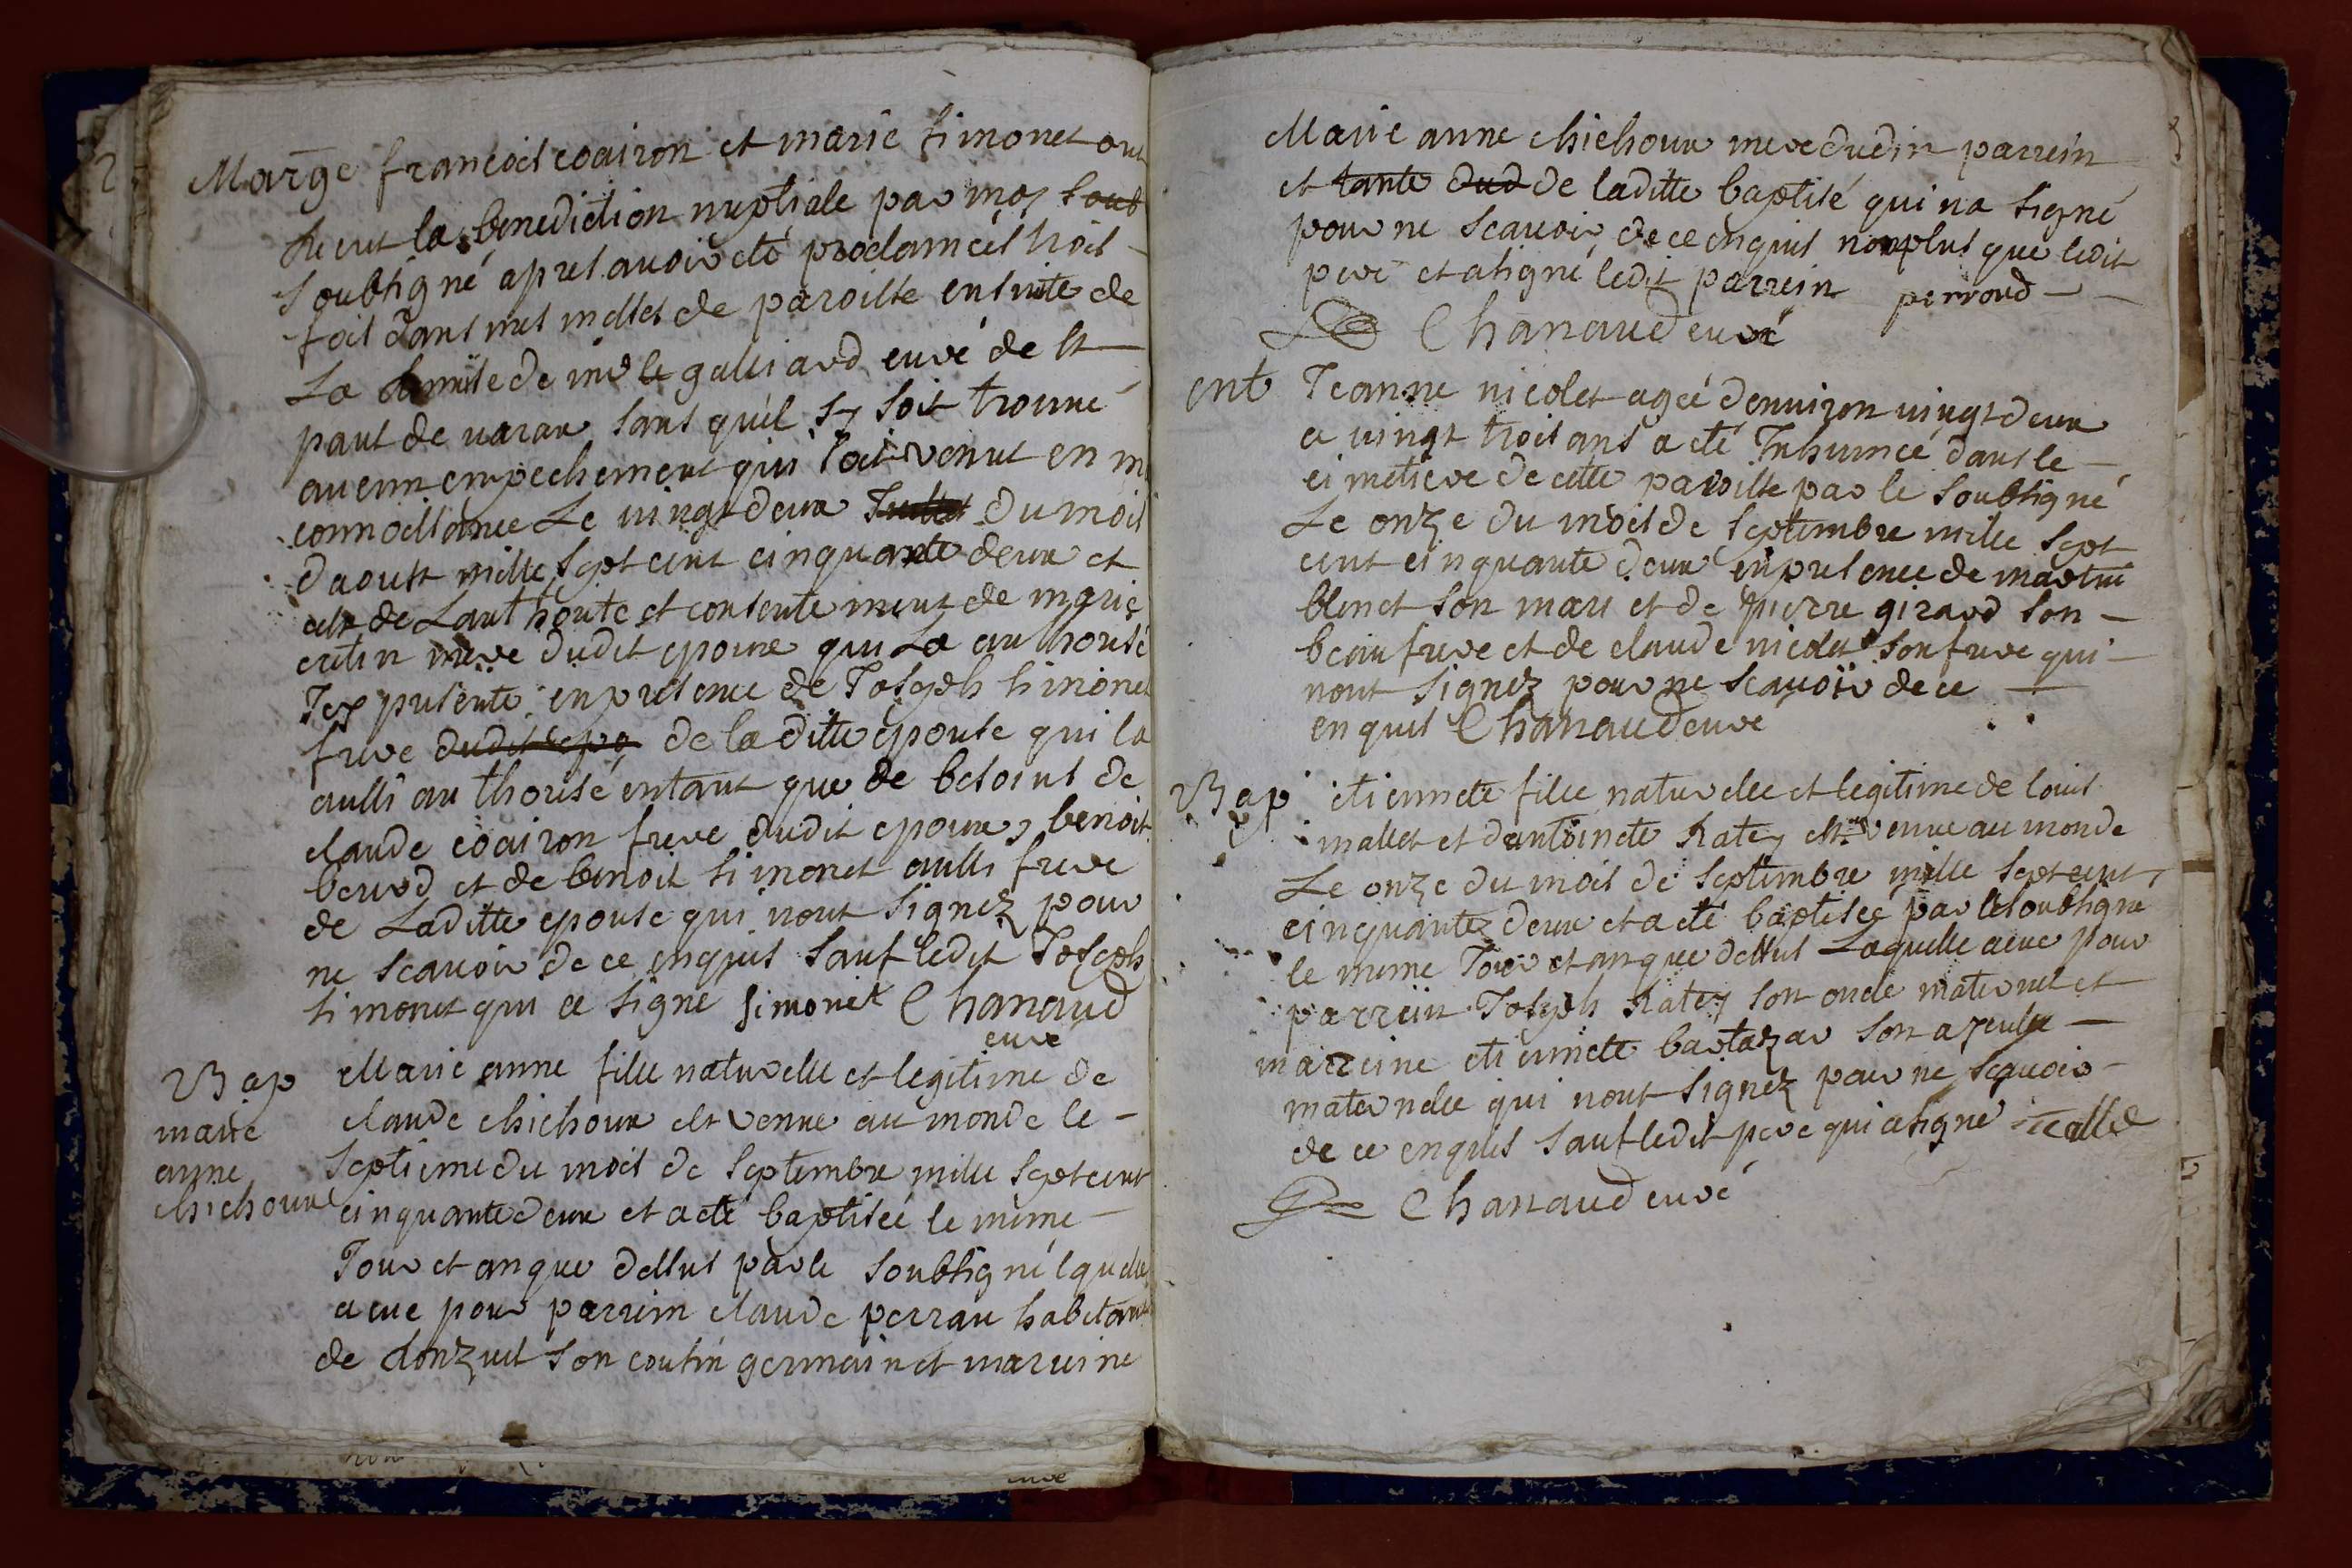 Marge francois coairon et marie simonet ont
Recut la benediction nuptiale par moy sous
soubsigné apres avoir eté proclamées trois
fois dans mes messes de paroisse ensuite de
La de mr le galliard curé de st
paul de varax sans quil sy soit trouvé
aucun empechement qui soit venut en m
connoissance Le vingt deux Juillet du mois
daoust mille sept cent cinquante deux et
de Lauthorite et consentement de marie
cretin mere dudit epoux qui La authorisé
Icy presente en presence de Joseph simonet
frere dudit epo de la ditte epouse qui la
aussi authorisé entant que de besoins de
claude coairon frere dudit epoux, benoit
berrod et de benoit simonet aussi frere
de Laditte epouse qui nont signez pour
ne scavoir de ce enquis sauf ledit Joseph
simonet qui a signé simonet Chanaud
curé
Bap marie anne chichoux
Marie anne fille naturelle et legitime de
claude chichoux est venue au monde le
septieme du mois de septembre mille sept cent
cinquante deux et a eté baptisée le meme
Jour et an que dessus par le soubsigné lquelle
a eue pour parrein claude perrau habitant
de donzuel son cousin germain et marreine
Marie anne chichoux mere dudit parrein
et tante dud de laditte baptisé qui na signé
pour ne scavoir de ce enquis nonplus que ledit
pere et a signé ledit parrein perroud
Chanaud curé
ent Jeanne nicolet agée denviron vingt deux
a vingt trois ans a eté Inhumée dans le
cimetiere de cette paroisse par le soubsigné
Le onze du mois de septembre mille sept
cent cinquante deux en presence de martin
blenet son mari et de pierre girard son
beaufrere et de claude nicolet son frere qui
nont signez pour ne scavoir de ce
enquis Chanaud curé
Bap etiennete fille naturelle et legitime de louis
mallet et dantoinete Ratey est venue au monde
Le onze du mois de septembre mille sept cent
cinquante deux et a eté baptisée par le soubsigné
le meme Jour et an que dessus Laquelle a eue pour
parrein Joseph Ratey son oncle maternel et
marreine etiennete bartazar son ayeulle
maternelle qui nont signez pour ne scavoir
de ce enquis sauf ledit pere qui a signé
Chanaud curé